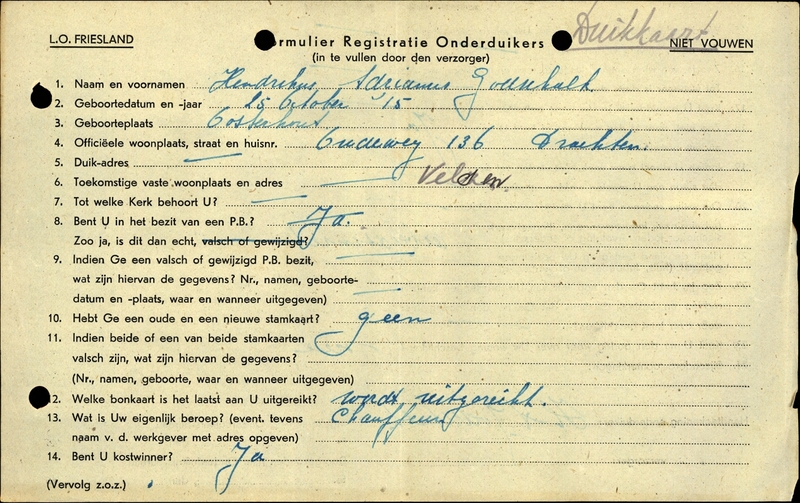 Duikkaart
L.O. FRIESLAND
rmulier Registratie Onderduikers
NIET VOUWEN
(in te vullen door den verzorger)
1. Naam en voornamen Hendrikus Adrianus
2. Geboortedatum en -jaar 25 October '15
3. Geboorteplaats Oosterhout
4. Officiëele woonplaats, straat en huisnr. Oudeweg 136 Drachten.
5. Duik-adres —
6. Toekomstige vaste woonplaats en adres — Velsen
7. Tot welke Kerk behoort U? —
8. Bent U in het bezit van een P.B.? Ja.
Zoo ja, is dit dan echt, valsch of gewijzigd?
9. Indien Ge een valsch of gewijzigd P.B. bezit, —
wat zijn hiervan de gegevens? Nr., namen, geboorte-
datum en -plaats, waar en wanneer uitgegeven) —
10. Hebt Ge een oude en een nieuwe stamkaart? geen
11. Indien beide of een van beide stamkaarten
valsch zijn, wat zijn hiervan de gegevens?
(Nr., namen, geboorte, waar en wanneer uitgegeven)
2. Welke bonkaart is het laatst aan U uitgereikt? wordt uitgereikt.
13. Wat is Uw eigenlijk beroep? (event. tevens Chauffeur
naam v. d. werkgever met adres opgeven)
14. Bent U kostwinner? Ja
(Vervolg z.o.z.)